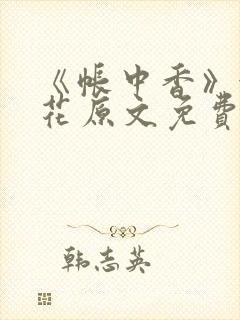 《帐中香》
花原文免費
韩志英